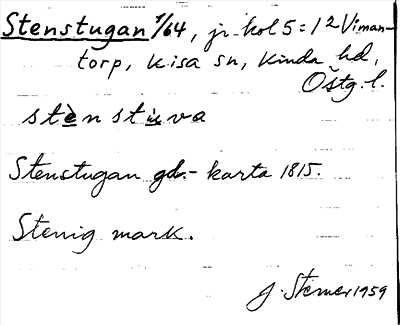 Stenstugan 1/64, jr kol 5 = 12 Viman-
torp, Kisa sn, Kinda hd,
Östg. l.
stènstùva
Stenstugan gd. - karta 1815.
Stenig mark.
J. Sterner 1959